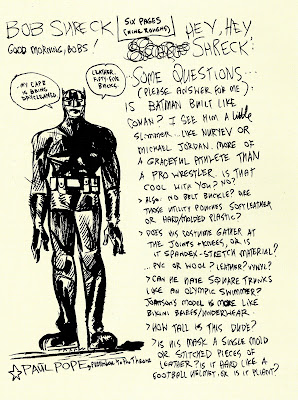 BOB SHRECK
GOOD MORNING, BOBS!
SIX PAGES
(NINE ROUGHS)
HEY, HEY,
SHRECK!
..MY CAPE
IS BEING
DRYCLEANED
LEATHER.
FIFTY-FIVE
BUCKS.
SOME QUESTIONS...
(PLEASE ANSWER FOR ME):
IS BATMAN BUILT LIKE
CONAN? I SEE HIM A little
SLIMMER.. LIKE NURYEV OR
MICHAEL JORDAN. MORE OF
A GRACEFUL ATHLETE THAN
A PRO WRESTLER. IS THAT
COOL WITH YOU? NO?
> ALSO: NO BELT BUCKLE? ARE
THOSE UTILITY POUCHES SOFT LEATHER
OR HARD/MOLDED PLASTIC?
> DOES HIS COSTUME GATHER AT
THE JOINTS + KNEES, OR IS
IT SPANDEX-STRETCH MATERIAL?
... PVC OR WOOL? LEATHER? VINYL?
> CAN HE HAVE SQUARE TRUNKS
LIKE AN OLYMPIC SWIMMER?
JOHNSON'S MODEL IS MORE LIKE
BIKINI BRIEFS/UNDERWEAR.
> HOW TALL IS THIS DUDE?
> IS HIS MASK A SINGLE MOLD
OR STITCHED PIECES OF
LEATHER? IS IT HARD LIKE A
FOOTBALL HELMET, OR IS IT PLIANT?
PAUL POPE,